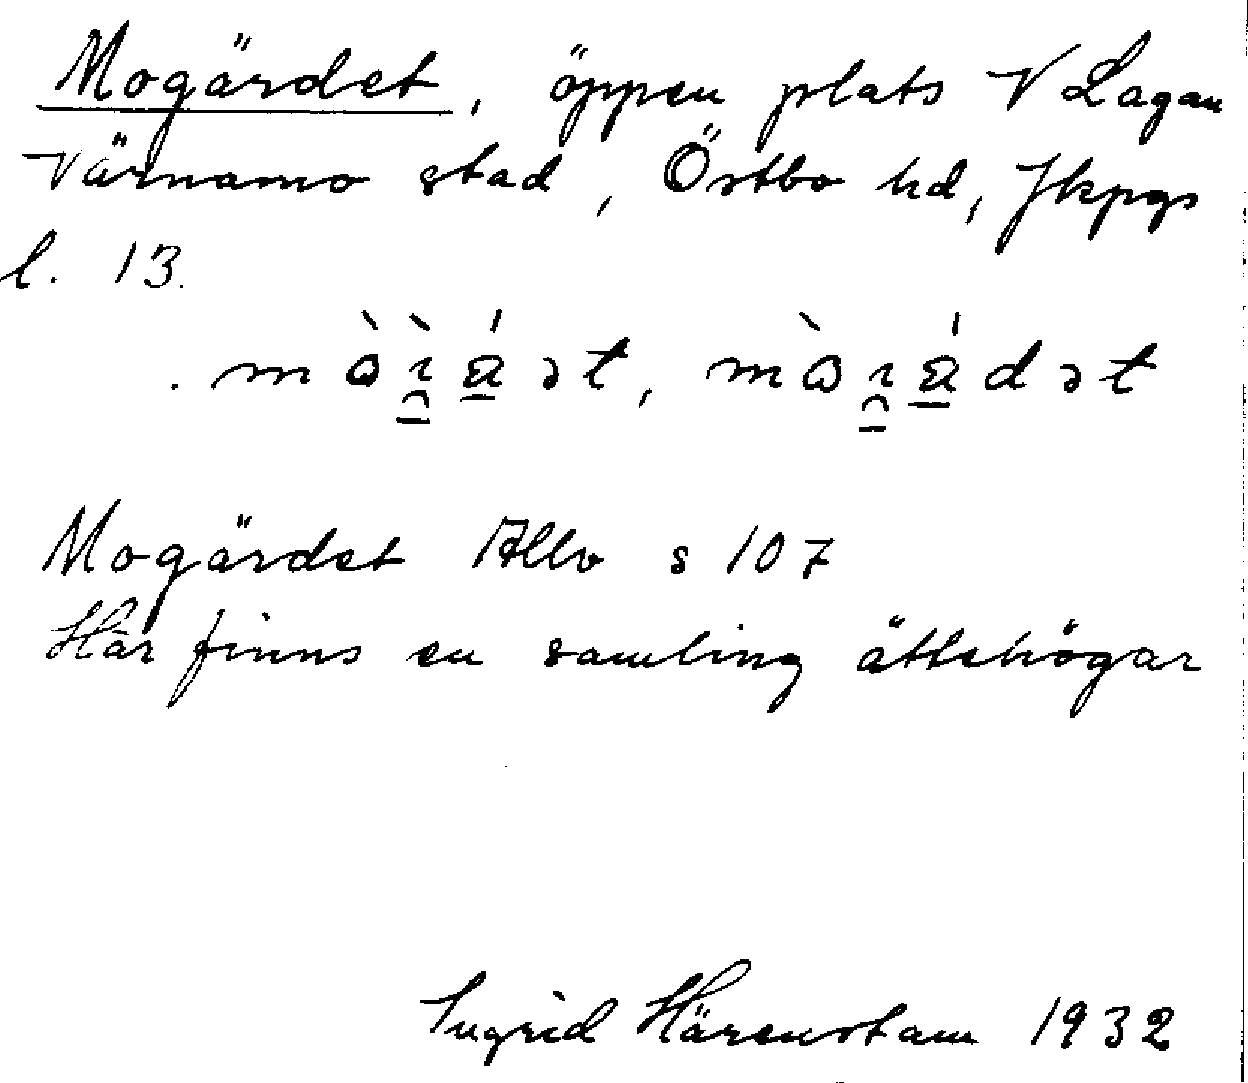 Mogärdet, öppen plats V Lagan
Värnamo stad, Östbo hd, Jkpgs
l. 13.
Mogärdet Allvo s 107
Här finns en samling ättehögar
Ingrid Härenstam 1932